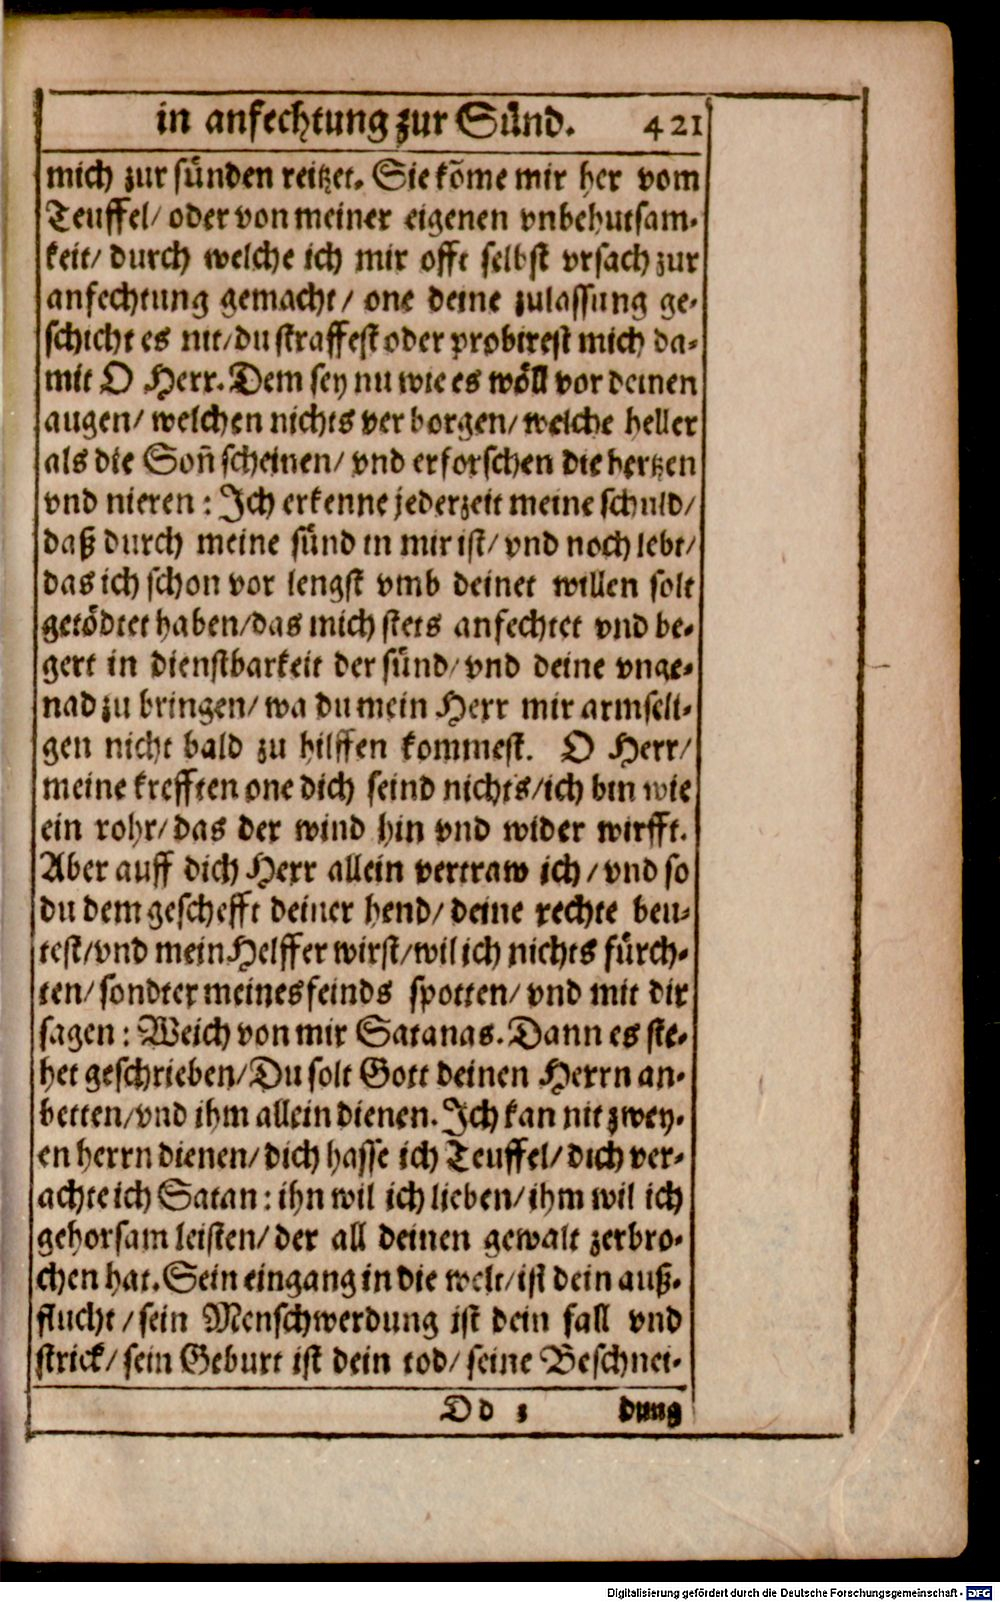 in anfechtung zur Sünd. 421
mich zur sünden reitzet. Sie kõme mir her vom
Teuffel/ oder von meiner eigenen vnbehutsam-
keit/ durch welche ich mir offt selbst vrsach zur
anfechtung gemacht/ one deine zulassung ge-
schicht es nit/ du straffest oder probirest mich da-
mit O Herr. Dem sey nu wie es wöll vor deinen
augen/ welchen nichts verborgen/ welche heller
als die Soñ scheinen/ vnd erforschen die hertzen
vnd nieren: Ich erkenne jederzeit meine schuld/
daß durch meine sünd in mir ist/ vnd noch lebt/
das ich schon vor lengst vmb deinet willen solt
getödtet haben/ das mich stets anfechtet vnd be-
gert in dienstbarkeit der sünd/ vnd deine vnge-
nad zu bringen/ wa du mein Herr mir armseli-
gen nicht bald zu hilffen kommest. O Herr/
meine krefften one dich seind nichts/ ich bin wie
ein rohr/ das der wind hin vnd wider wirfft.
Aber auff dich Herr allein vertraw ich/ vnd so
du dem geschefft deiner hend/ deine rechte beu-
test/ vnd mein Helffer wirst/ wil ich nichts fürch-
ten/ sondter meines feinds spotten/ vnd mit dir
sagen: Weich von mir Satanas. Dann es ste-
het geschrieben/ Du solt Gott deinen Herrn an-
betten/ vnd ihm allein dienen. Ich kan nit zwey-
en herrn dienen/ dich hasse ich Teuffel/ dich ver-
achte ich Satan: ihn wil ich lieben/ ihm wil ich
gehorsam leisten/ der all deinen gewalt zerbro-
chen hat. Sein eingang in die welt/ ist dein auß-
flucht/ sein Menschwerdung ist dein fall vnd
strick/ sein Geburt ist dein tod/ seine Beschnei-
Dd 1 dung
Digitalisierung gefördert durch die Deutsche Forschungsgemeinschaft - DFG